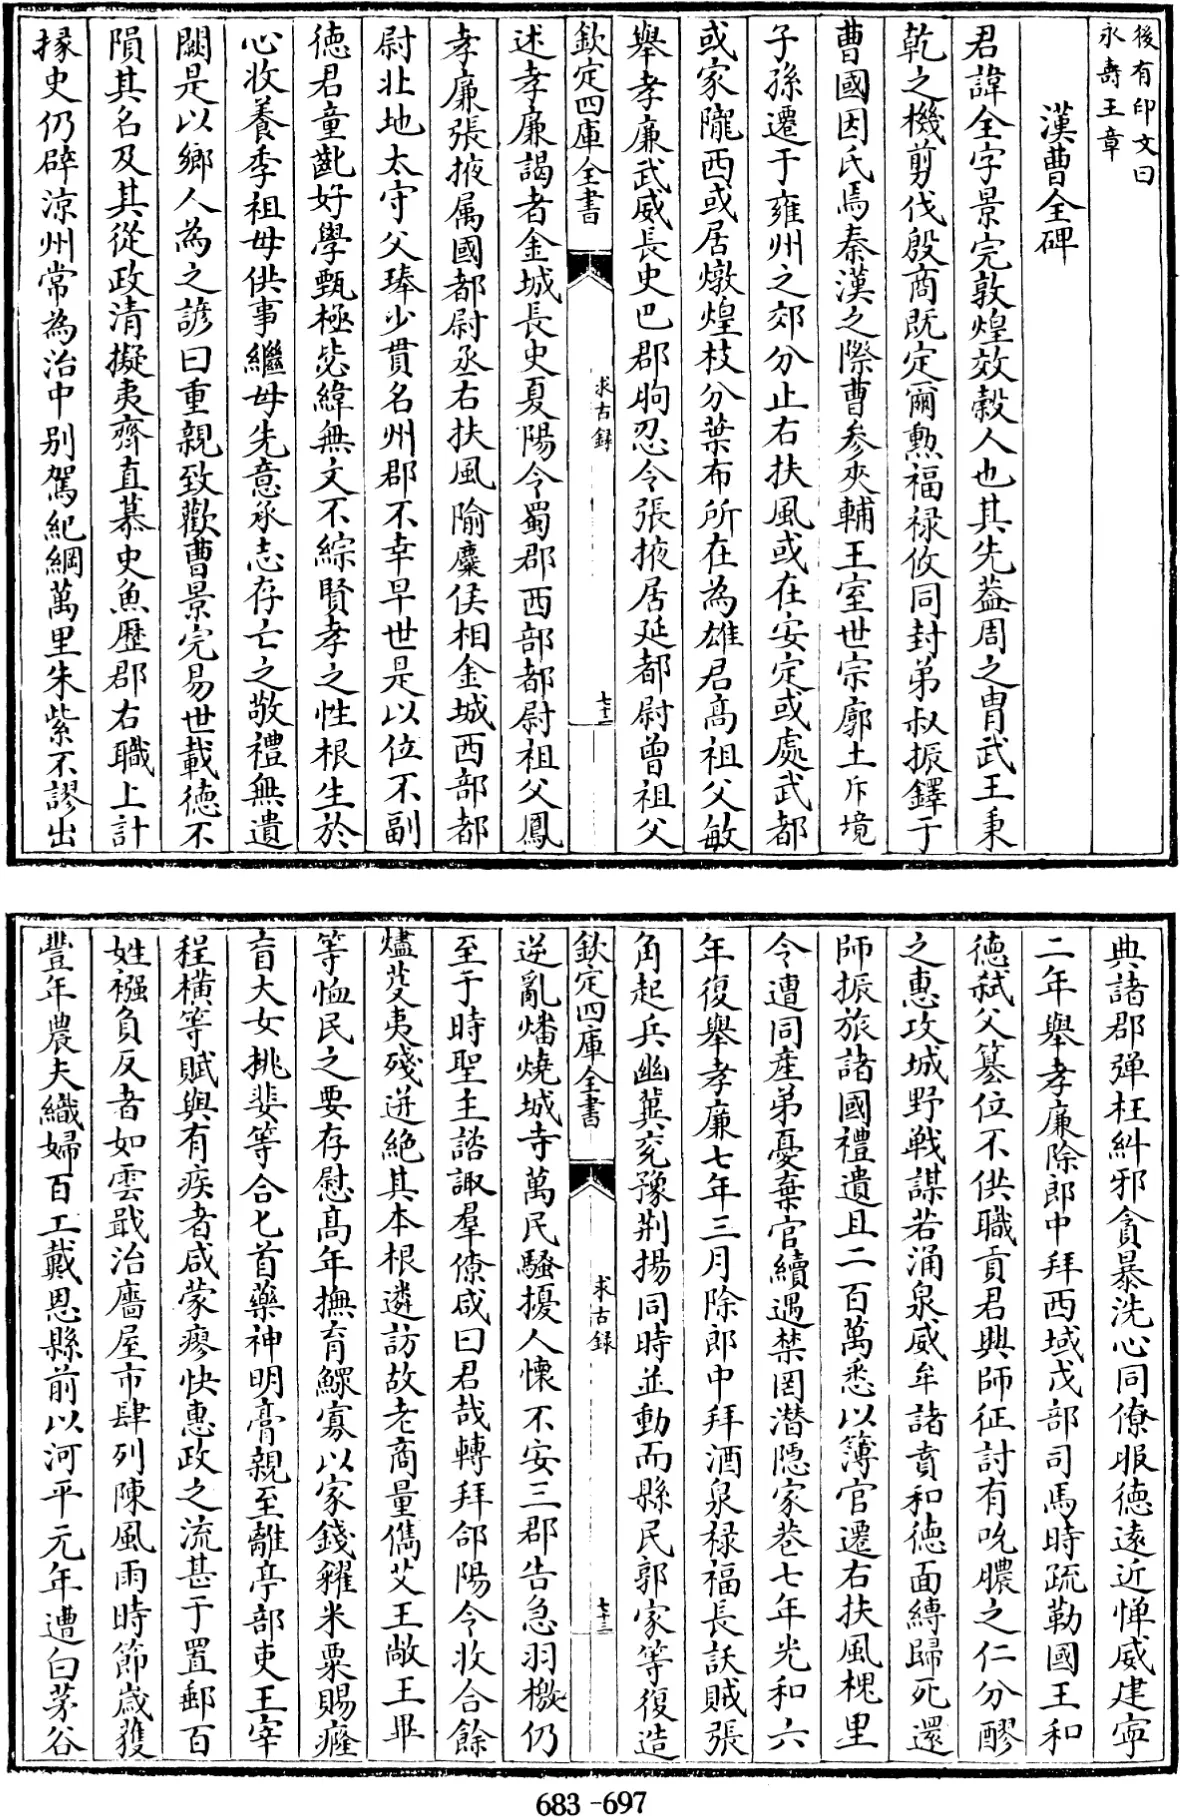 後有印文曰
永壽王章
漢曹全碑
君諱全字景完敦煌效穀人也其先葢周之胄武王秉
乾之機剪伐殷商既定爾勲福禄攸同封弟叔振鐸于
曹國因氏焉秦漢之際曹參夾輔王室世宗廓土斥境
子孫遷于雍州之郊分止右扶風或在安定或處武都
或家隴西或居燉煌枝分葉布所在為雄君髙祖父敏
舉孝廉武威長史巴郡朐忍令張掖居延都尉曾祖父
欽定四庫全書
求古錄
七三
述孝廉謁者金城長史夏陽令蜀郡西部都尉祖父鳳
孝廉張掖属國都尉丞右扶風隃麋侯相金城西部都
尉北地太守父琫少貫名州郡不幸早世是以位不副
徳君童齔好學甄極毖緯無文不綜賢孝之性根生於
心收養季祖母供事繼母先意承志存亡之敬禮無遺
闕是以鄉人為之諺曰重親致歡曹景完易世載徳不
隕其名及其從政清擬夷齊直慕史魚歴郡右職上計
掾史仍辟涼州常為治中别駕紀綱萬里朱紫不謬出
典諸郡彈枉糾邪貪暴洗心同僚服徳逺近惮威建寧
二年舉孝廉除郎中拜西域戊部司馬時疏勒國王和
徳弑父簒位不供職貢君興師征討有吮膿之仁分醪
之惠攻城野戰謀若涌泉威牟諸賁和徳面縛歸死還
師振旅諸國禮遺且二百萬悉以簿官遷右扶風槐里
令遭同産弟憂棄官續遇禁罔潛隠家巷七年光和六
年復舉孝廉七年三月除郎中拜酒泉禄福長訞賊張
角起兵幽冀兖豫荆揚同時並動而縣民郭家等復造
欽定四庫全書
求古録
七十三
逆亂燔燒城寺萬民騷擾人懷不安三郡告急羽檄仍
至于時聖主諮諏羣僚咸曰君哉轉拜郃陽令收合餘
燼芟夷殘迸絶其本根遂訪故老商量儁艾王敞王畢
等恤民之要存慰髙年撫育鰥寡以家錢糴米粟賜癃
盲大女桃婓等合七首藥神明膏親至離亭部吏王宰
程横等賦與有疾者咸蒙瘳快惠政之流甚于置郵百
姓襁負反者如雲戢治廧屋市肆列陳風雨時節歳獲
豐年農夫織婦百工戴恩縣前以河平元年遭白茅谷
683-697